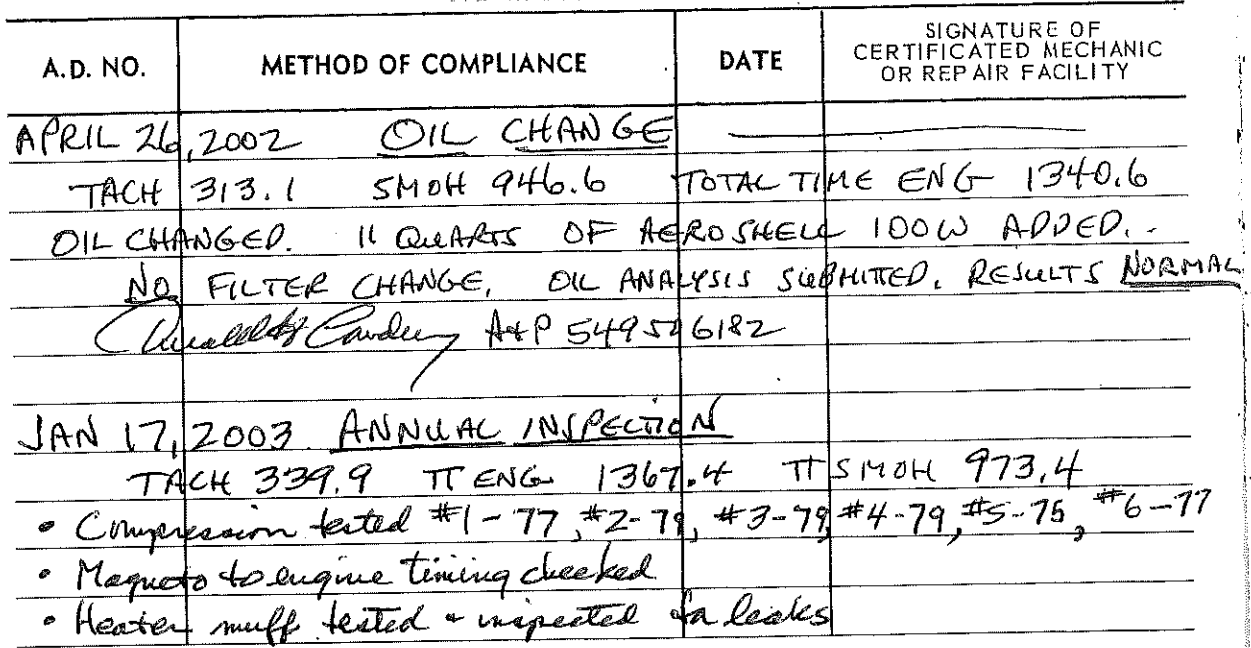 A.D. NO. METHOD OF COMPLIANCE DATE SIGNATURE OF CERTIFICATED MECHANIC OR REPAIR FACILITY
APRIL 26, 2002 OIL CHANGE
TACH 313.1 SMOH 946.6 TOTAL TIME ENG 1340.6
OIL CHANGED. 11 QUARTS OF AEROSHELL 100W ADDED.
NO FILTER CHANGE. OIL ANALYSIS SUBMITTED. RESULTS NORMAL
A&P 549506182
JAN 17, 2003 ANNUAL INSPECTION
TACH 339.9 TT ENG 1367.4 TT SMOH 973.4
• Compression tested #1-77, #2-79, #3-79, #4-79, #5-75, #6-77
• Magneto to engine timing checked
• Heater muff tested & inspected for leaks